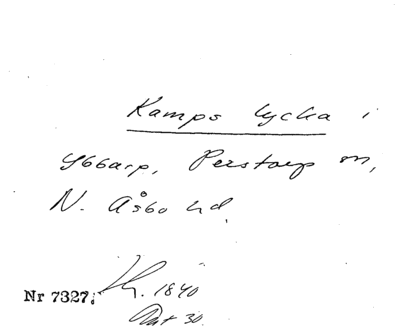 Kamps lycka i
Ybbarp, Perstorp sn,
N. Åsbo hd.
Nr 7327. 1840
30.